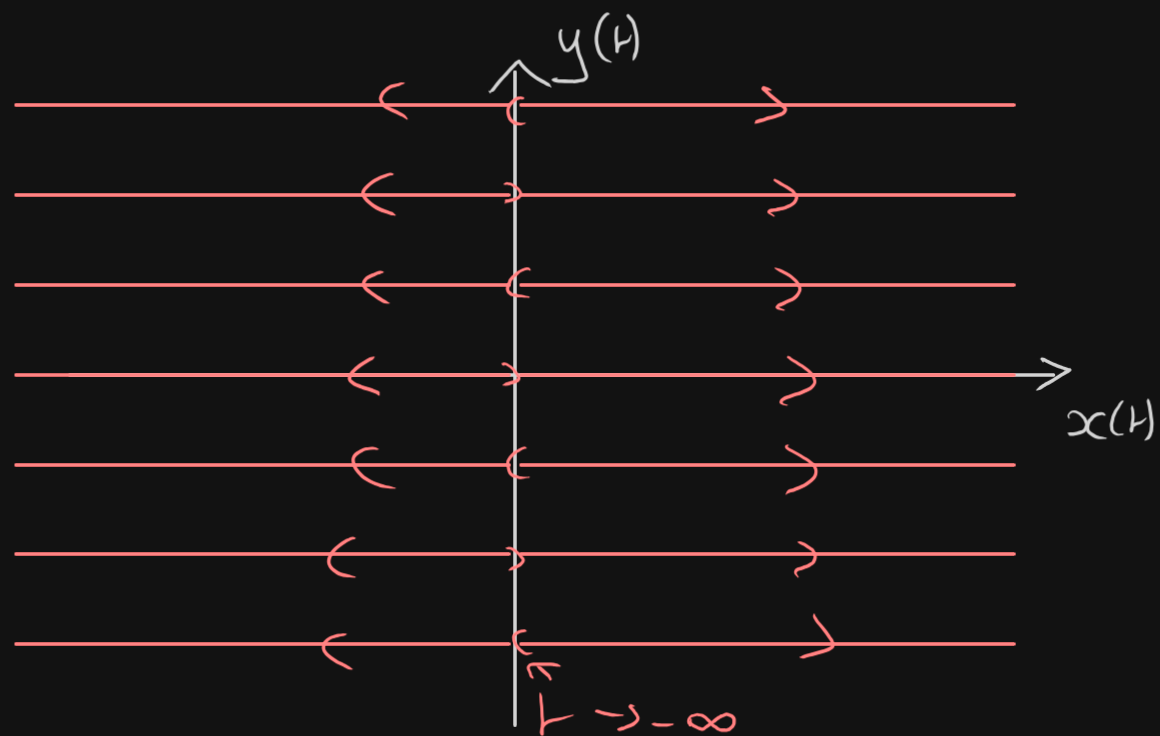 y(t)
x(t)
t → -∞